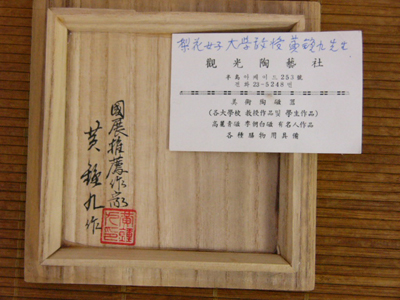 梨花女子大學敎授 黃鍾九先生
觀光陶藝社
半島아케이드 253號
電話 23-5248번
美術陶磁器
(各大學校 敎授作品 및 學生作品)
高麗靑磁 李朝白磁 有名人作品
各種膳物用具備
國展推薦作家
黃鍾九作